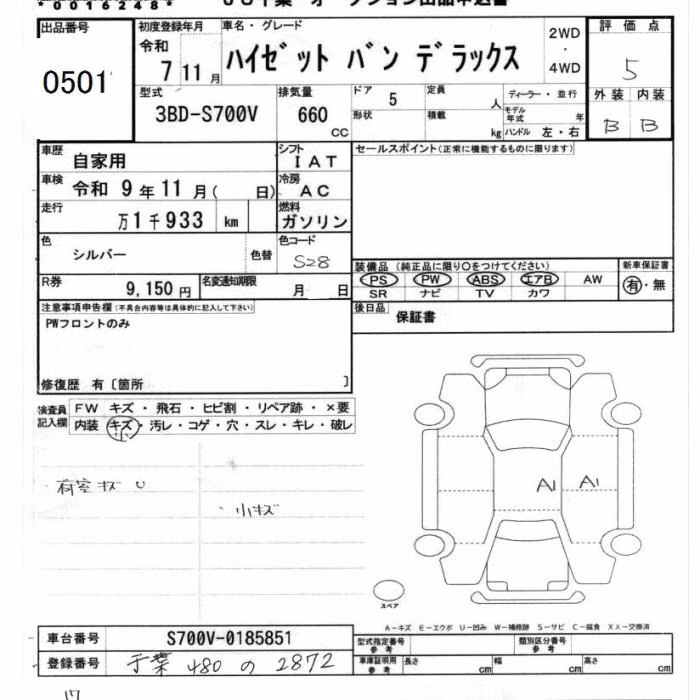 *0016248*
出品番号
0501
初度登録年月
令和
7 11 月
車名・グレード
ハイゼット バン デラックス
2WD
・
4WD
評価点
5
外装 内装
B B
型式
3BD-S700V
排気量
660
CC
ドア
5
定員
人
形状
積載
kg
ディーラー・並行
モデル年式
年
ハンドル 左・右
車歴
自家用
シフト
IAT
車検
令和 9 年 11 月( 日)
冷房
AC
走行
万1千933 km
燃料
ガソリン
色
シルバー
色替
色コード
S28
R券
9,150 円
名変通知期限
月 日
セールスポイント(正常に機能するものに限ります)
装備品 (純正品に限り○をつけてください)
PS PW ABS エアB AW
SR ナビ TV カワ
新車保証書
有・無
後日品
保証書
注意事項申告欄(不具合内容等は具体的に記入して下さい)
PWフロントのみ
修復歴 有〔箇所 〕
検査員記入欄
FW キズ・飛石・ヒビ割・リペア跡・×要
内装 キズ・汚レ・コゲ・穴・スレ・キレ・破レ
小
荷室キズ U
小キズ
A1 A1
スペア
A-キズ E-エクボ U-凹み W-補修跡 S-サビ C-腐食 XX-交換済
車台番号
S700V-0185851
登録番号
千葉 480 の 2872
型式指定番号
参考
類別区分番号
参考
車庫証明用
参考
長さ cm
幅 cm
高さ cm